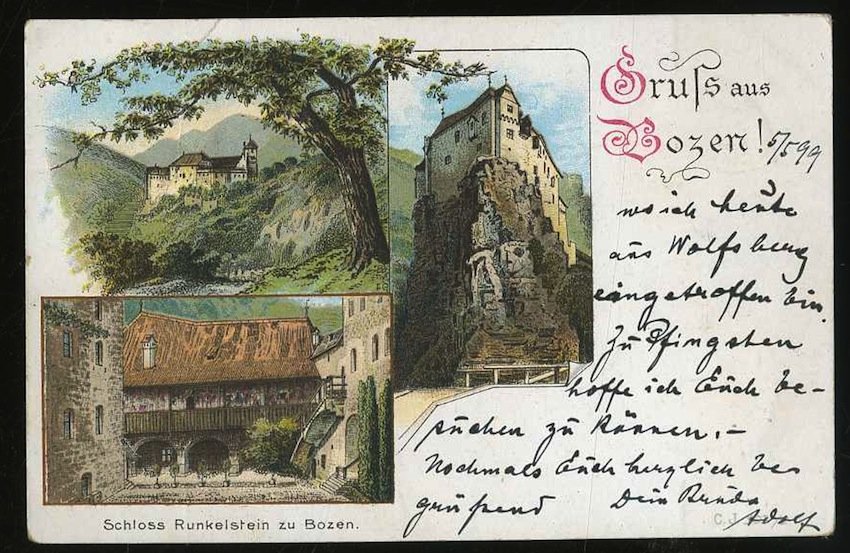 Gruss aus
Bozen! 5/5 99
wo ich heute
aus Wolfsberg
eingetroffen bin.
Zu Pfingsten
hoffe ich Euch be-
suchen zu können.-
Nochmals Euch herzlich be
grüßend Dein Bruder
Adolf
Schloss Runkelstein zu Bozen.
C.J.